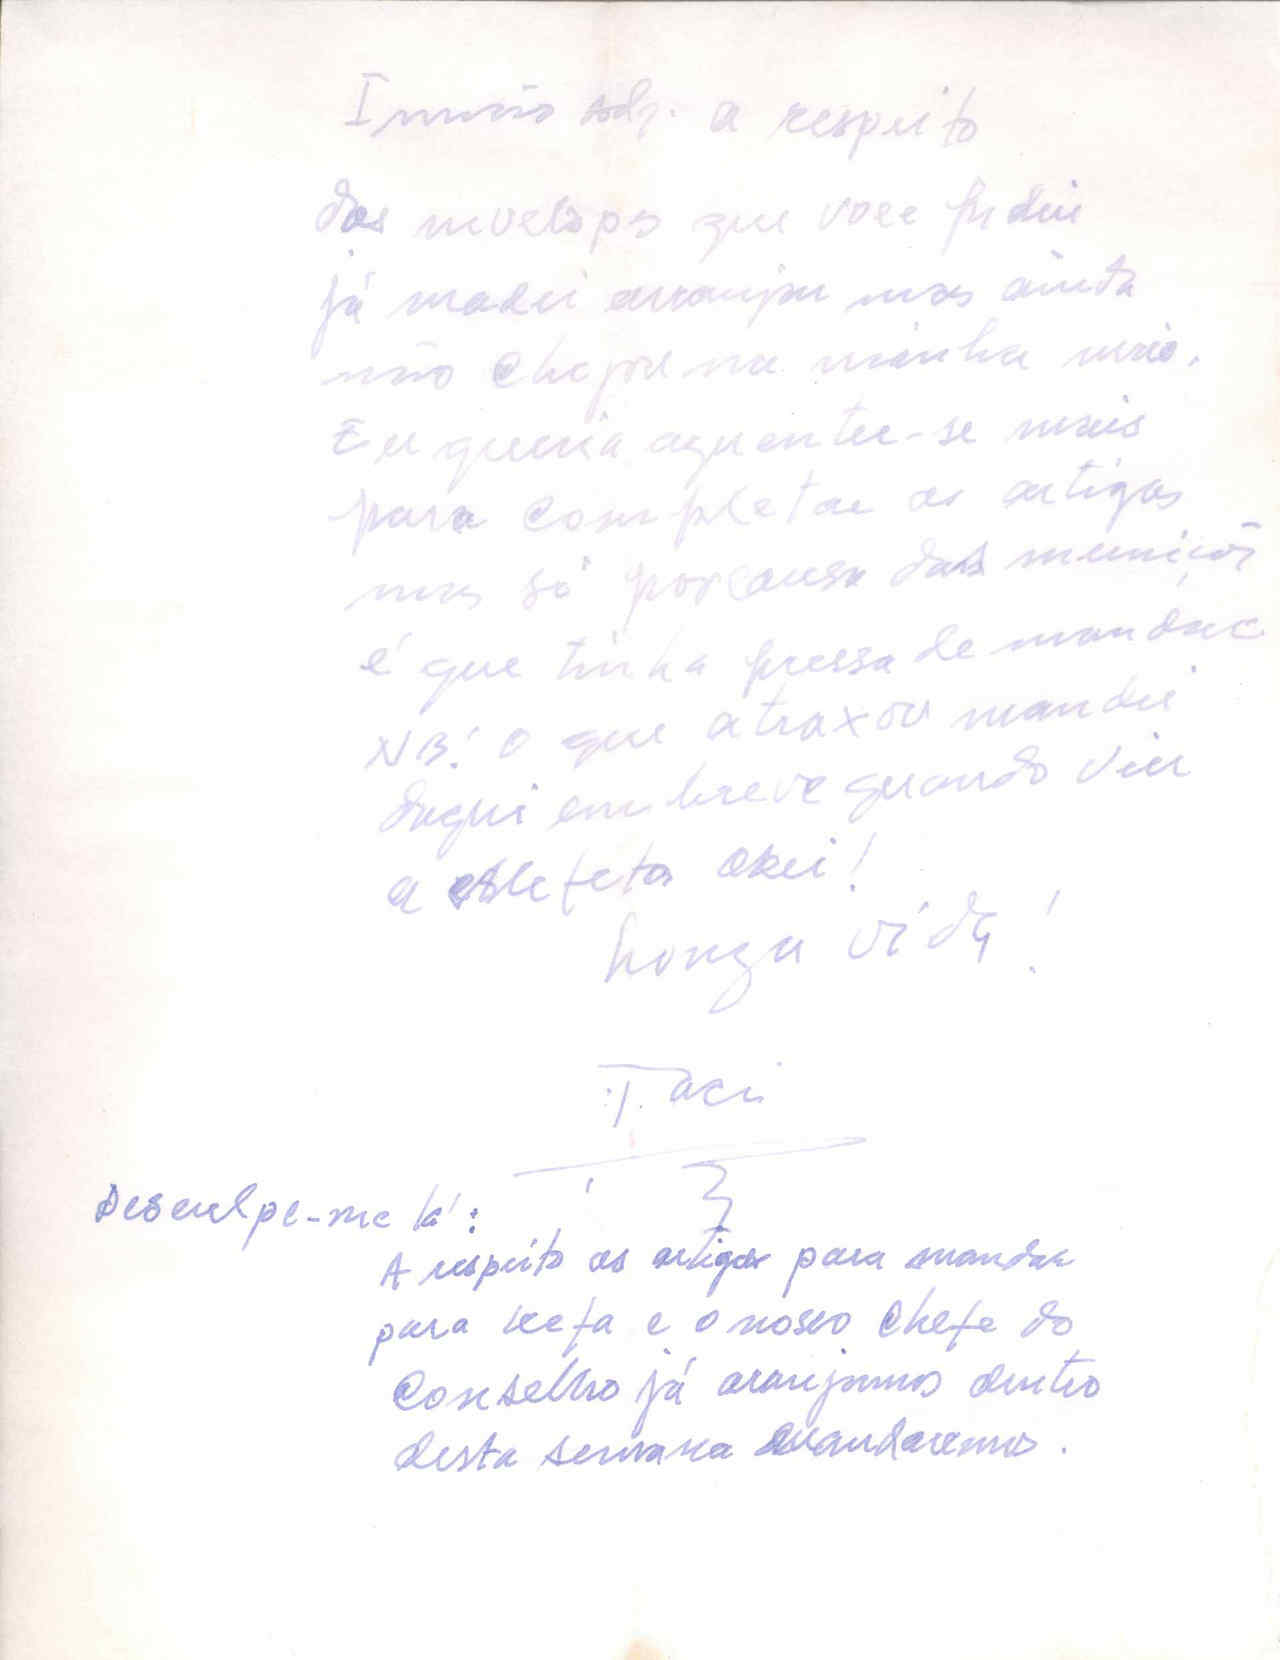 Irmão Adj. a respeito
dos envelops que voce pediu
já madei arranjar mas ainta
não chegou na minha mão.
Eu queria aguentar-se mais
para completar os artigos
mas só por causa das muniçõs
é que tinha pressa de mandar
NB: o que atraxou mandei
daqui em breve quando vier
a estefeta okei!
Longa vida!
Taci
Desculpe-me lá:
A respeito os artigos para mandar
para Kefa e o nosso Chefe do
Conselho já aranjamos dentro
desta semana mandaremos.